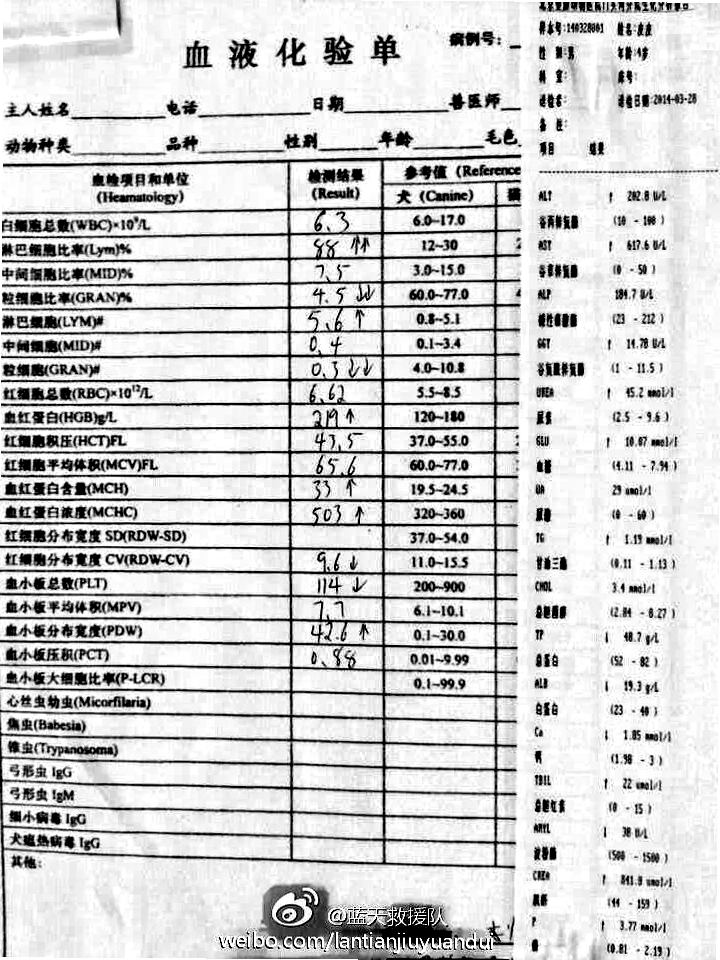 血液化验单
病例号:
主人姓名 电话 日期 兽医师
动物种类 品种 性别 年龄 毛色
血检项目和单位 (Heamatology) 检测结果 (Result) 参考值 (Reference
犬 (Canine)
白细胞总数(WBC)×10⁹/L 6.3 6.0~17.0
淋巴细胞比率(Lym)% 88 ↑↑ 12~30
中间细胞比率(MID)% 7.5 3.0~15.0
粒细胞比率(GRAN)% 4.5 ↓↓ 60.0~77.0
淋巴细胞(LYM)# 5.6 ↑ 0.8~5.1
中间细胞(MID)# 0.4 0.1~3.4
粒细胞(GRAN)# 0.3 ↓↓ 4.0~10.8
红细胞总数(RBC)×10¹²/L 6.62 5.5~8.5
血红蛋白(HGB)g/L 219 ↑ 120~180
红细胞积压(HCT)FL 43.5 37.0~55.0
红细胞平均体积(MCV)FL 65.6 60.0~77.0
血红蛋白含量(MCH) 33 ↑ 19.5~24.5
血红蛋白浓度(MCHC) 503 ↑ 320~360
红细胞分布宽度 SD(RDW-SD) 37.0~54.0
红细胞分布宽度 CV(RDW-CV) 9.6 ↓ 11.0~15.5
血小板总数(PLT) 114 ↓ 200~900
血小板平均体积(MPV) 7.7 6.1~10.1
血小板分布宽度(PDW) 42.6 ↑ 0.1~30.0
血小板压积(PCT) 0.88 0.01~9.99
血小板大细胞比率(P-LCR) 0.1~99.9
心丝虫幼虫(Micorfilaria)
焦虫(Babesia)
锥虫(Trypanosoma)
弓形虫 IgG
弓形虫 IgM
细小病毒 IgG
犬瘟热病毒 IgG
其他:
样本号:140328001 姓名:皮皮
性 别:男 年龄:4岁
科 室: 床号:
送检者: 送检日期:2014-03-28
备 注:
项目 结果
ALT ↑ 202.8 U/L
谷丙转氨酶 (10 - 100)
AST ↑ 617.6 U/L
谷草转氨酶 (0 - 50)
ALP 184.7 U/L
碱性磷酸酶 (23 - 212)
GGT ↑ 14.78 U/L
谷氨酰转氨酶 (1 - 11.5)
UREA ↑ 45.2 mmol/l
尿素 (2.5 - 9.6)
GLU ↑ 10.07 mmol/l
血糖 (4.11 - 7.94)
UA 29 umol/l
尿酸 (0 - 60)
TG ↑ 1.19 mmol/l
甘油三酯 (0.11 - 1.13)
CHOL 3.4 mmol/l
总胆固醇 (2.84 - 8.27)
TP ↓ 48.7 g/L
总蛋白 (52 - 82)
ALB ↓ 19.3 g/L
白蛋白 (23 - 40)
Ca ↓ 1.85 mmol/l
钙 (1.98 - 3)
TBIL ↑ 22 umol/l
总胆红素 (0 - 15)
AMYL ↓ 38 U/L
淀粉酶 (500 - 1500)
CREA ↑ 841.9 umol/l
肌酐 (44 - 159)
P ↑ 3.77 mmol/l
磷 (0.81 - 2.19)
@蓝天救援队
weibo.com/lantianjiuyuandui